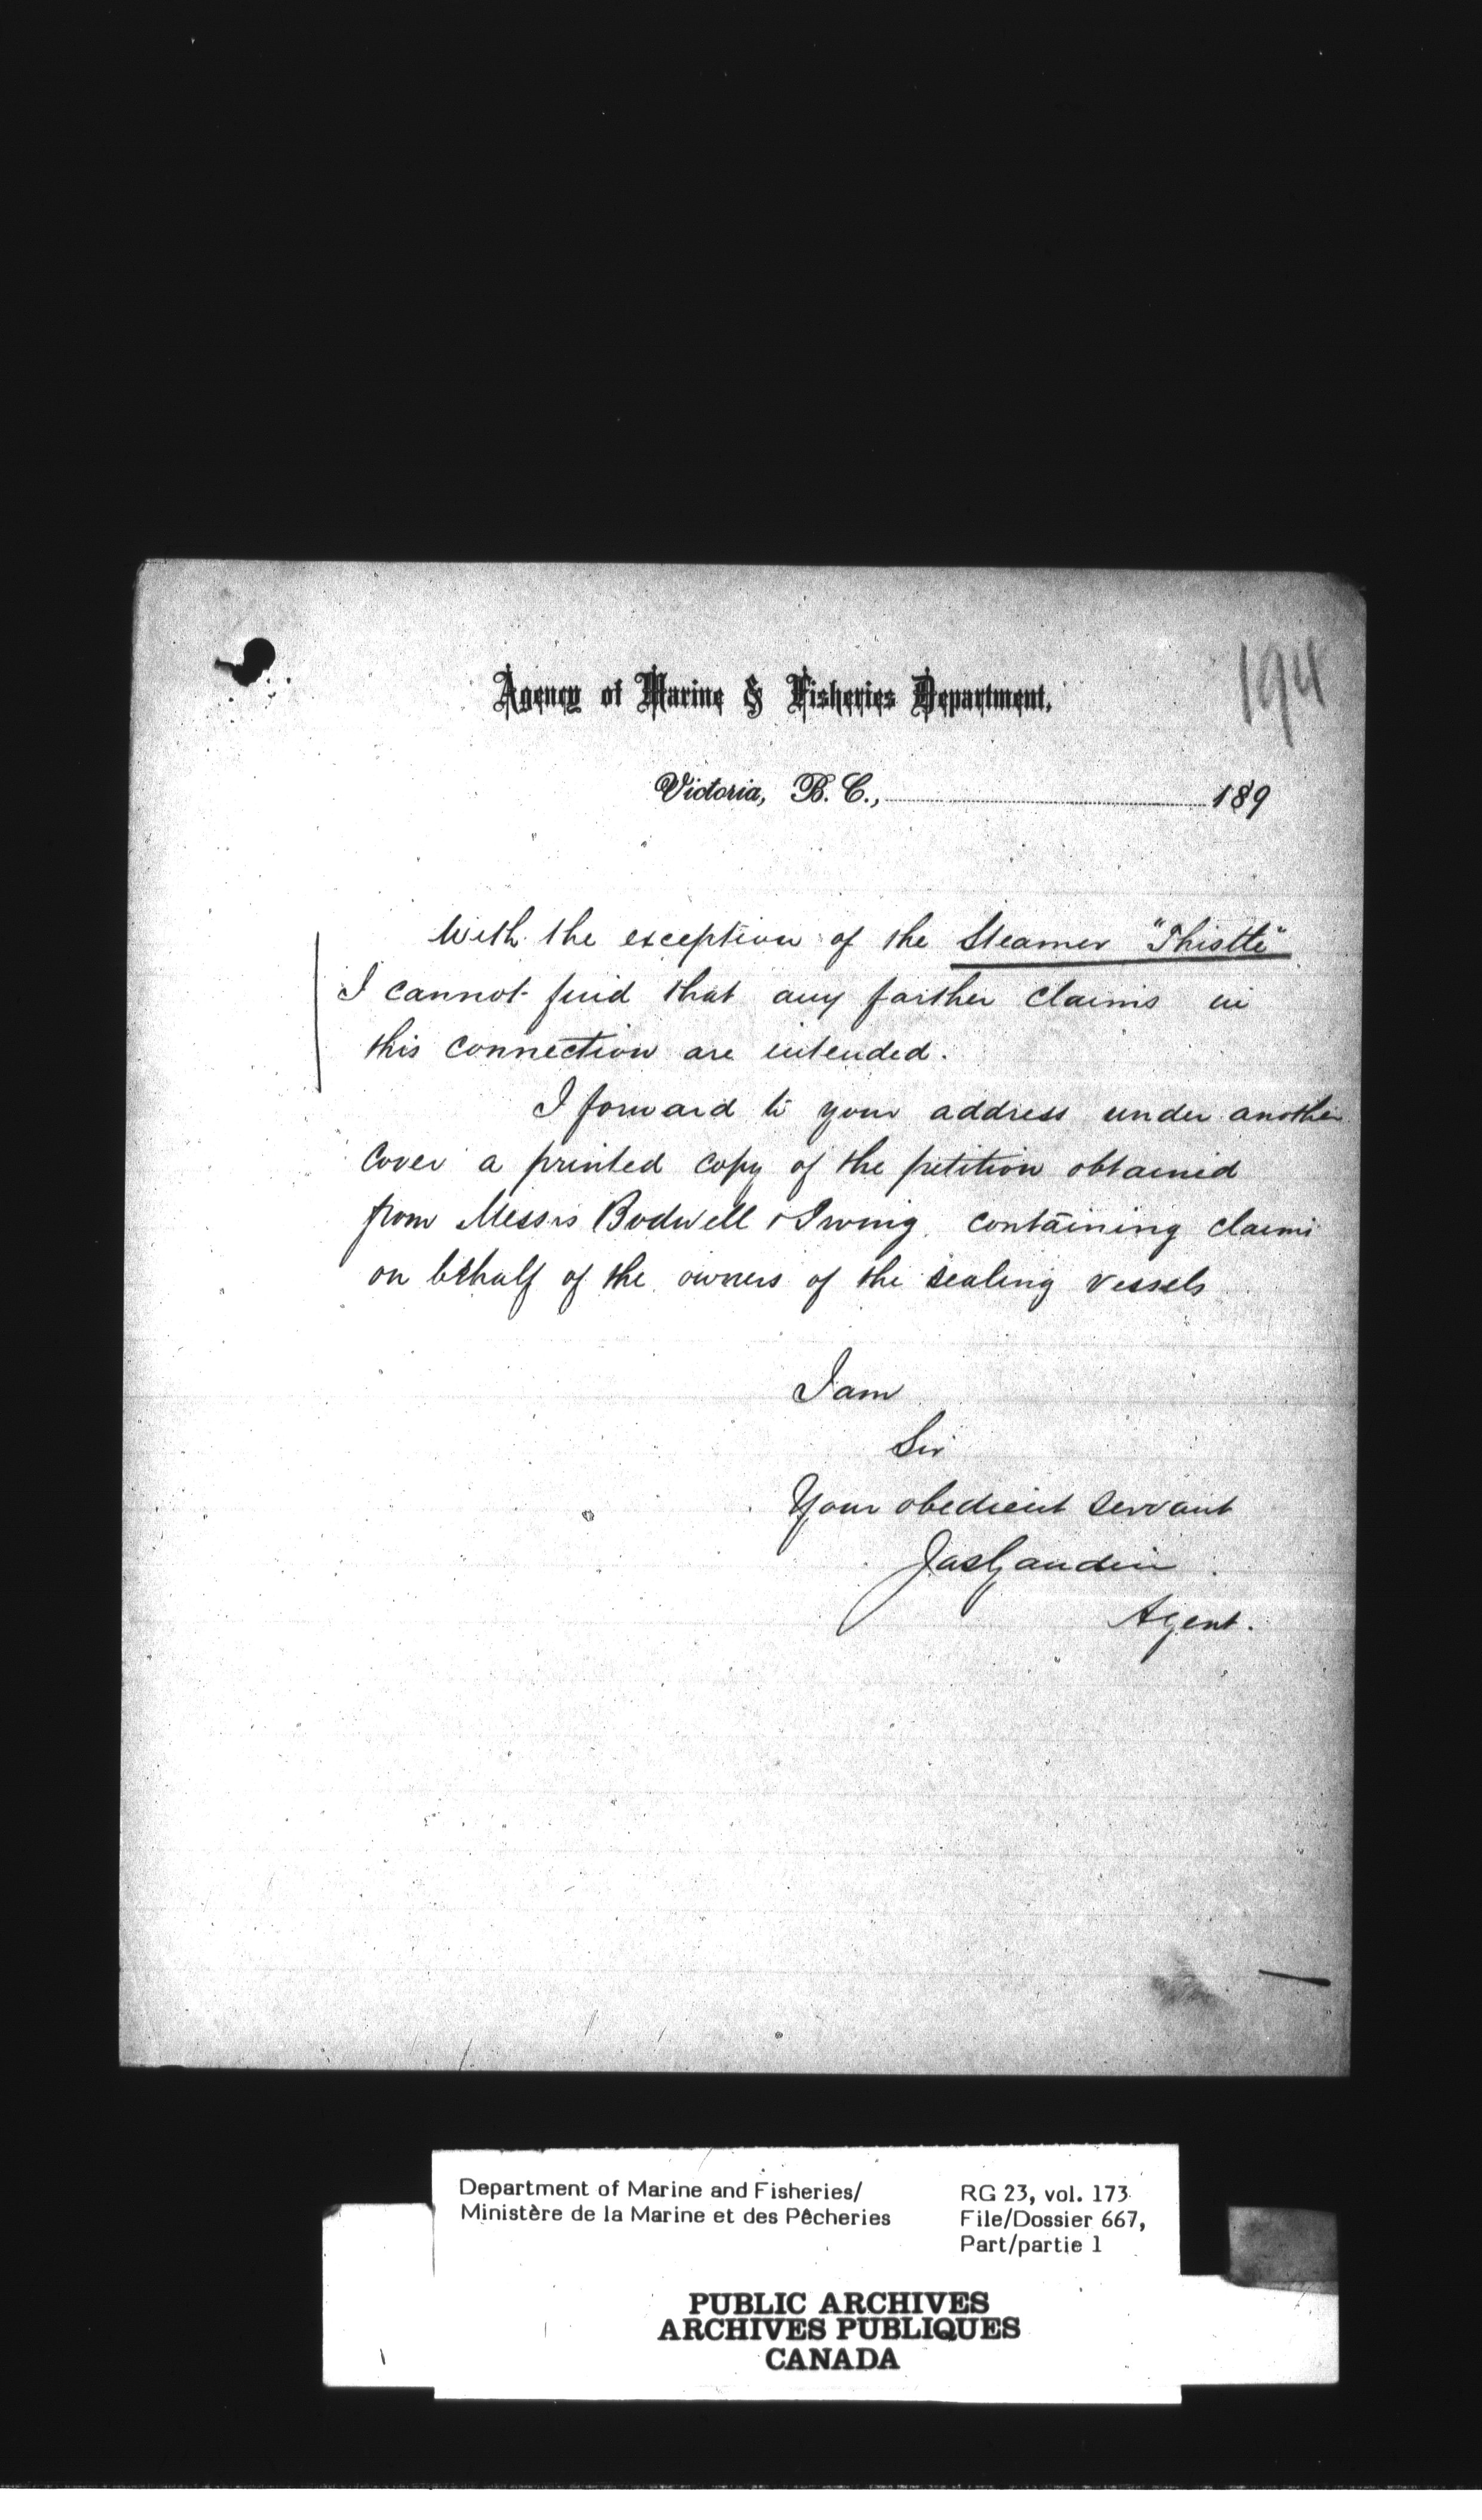 194
Agency of Marine & Fisheries Department,
Victoria, B. C., 189
With the exception of the Steamer "Thistle"
I cannot find that any farther claims in
this connection are intended.
I forward to your address under another
cover a printed copy of the petition obtained
from Messrs Bodwell & Irving containing claims
on behalf of the owners of the sealing vessels
I am
Sir
Your obedient servant
Jas Gaudin
Agent.
Department of Marine and Fisheries/
Ministère de la Marine et des Pêcheries
RG 23, vol. 173
File/Dossier 667,
Part/partie 1
PUBLIC ARCHIVES
ARCHIVES PUBLIQUES
CANADA